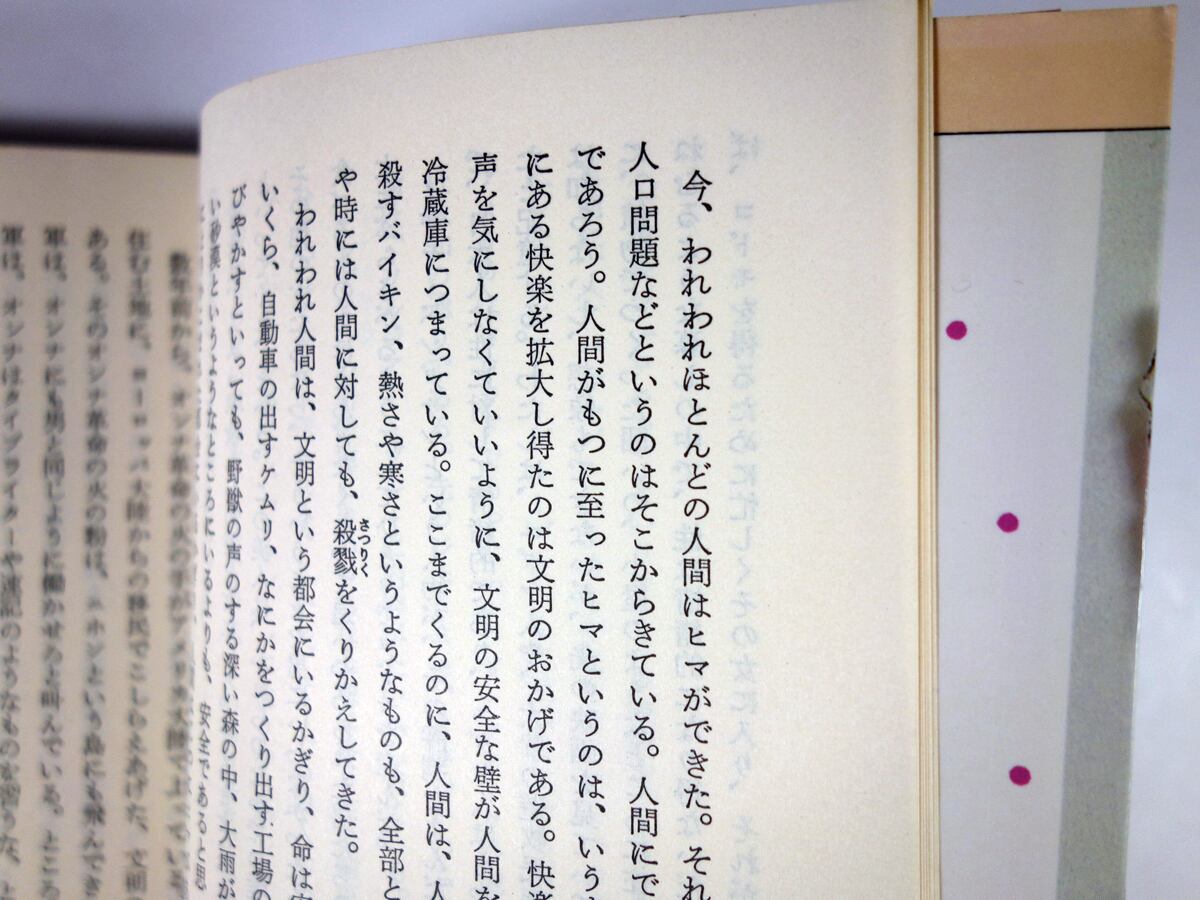 今、われわれほとんどの人間はヒマができた。それ
人口問題などというのはそこからきている。人間にで
であろう。人間がもつに至ったヒマというのは、いう
にある快楽を拡大し得たのは文明のおかげである。快楽
声を気にしなくていいように、文明の安全な壁が人間を
冷蔵庫につまっている。ここまでくるのに、人間は、人
殺すバイキン、熱さや寒さというようなものも、全部と
や時には人間に対しても、殺戮をくりかえしてきた。
さつりく
われわれ人間は、文明という都会にいるかぎり、命は安
いくら、自動車の出すケムリ、なにかをつくり出す工場の
びやかすといっても、野獣の声のする深い森の中、大雨が
い砂漠というようなところにいるよりも、安全であると思
数年前から、オンナ革命の火の手がアメリカ大陸で上っている
住む土地に、ヨーロッパ大陸からの移民でこしらえあげた、文明
ある。そのオンナ革命の火の粉は、ニホンという島にも飛んでき
軍は、オンナにも男と同じように働かせろと叫んでいる。ところ
軍は、オンナはタイプライターや速記のようなものを習うな、と